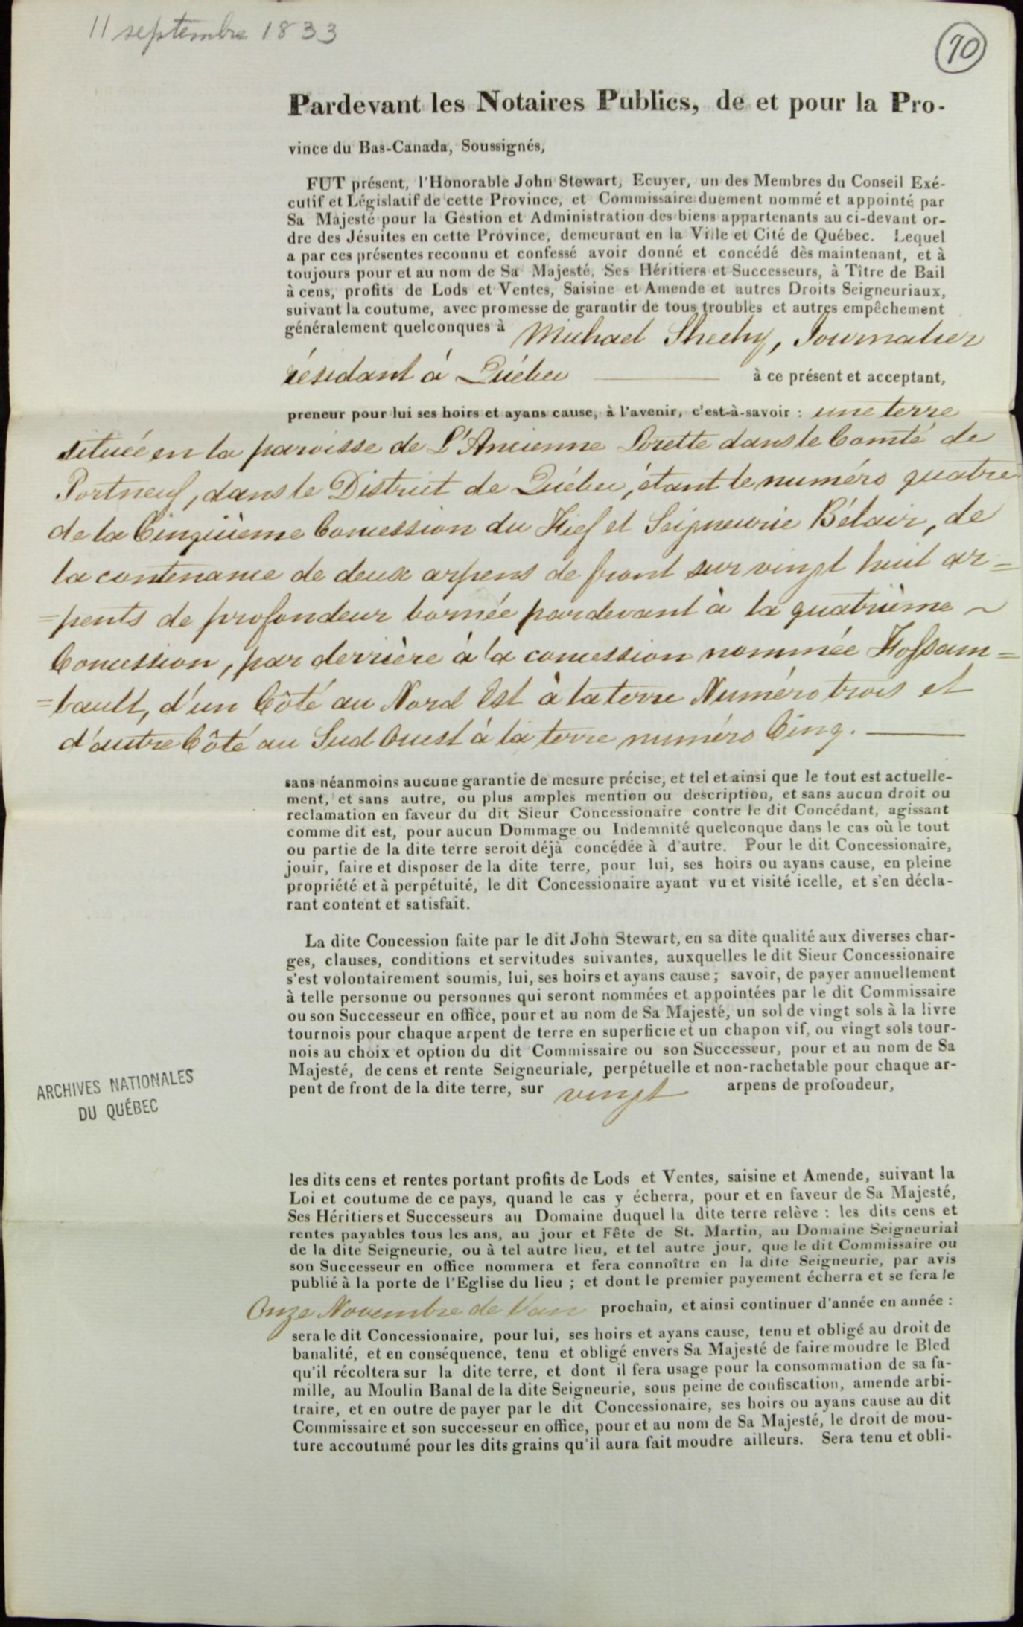 11 septembre 1833
70
Pardevant les Notaires Publics, de et pour la Pro-
vince du Bas-Canada, Soussignés,
FUT présent, l'Honorable John Stewart, Ecuyer, un des Membres du Conseil Exé-
cutif et Législatif de cette Province, et Commissaire duement nommé et appointé par
Sa Majesté pour la Gestion et Administration des biens appartenants au ci-devant or-
dre des Jésuites en cette Province, demeurant en la Ville et Cité de Québec. Lequel
a par ces présentes reconnu et confessé avoir donné et concédé dès maintenant, et à
toujours pour et au nom de Sa Majesté, Ses Héritiers et Successeurs, à Titre de Bail
à cens, profits de Lods et Ventes, Saisine et Amende et autres Droits Seigneuriaux,
suivant la coutume, avec promesse de garantir de tous troubles et autres empêchement
généralement quelconques à Michael Sheehy, Journalier
résidant à Québec à ce présent et acceptant,
preneur pour lui ses hoirs et ayans cause, à l'avenir, c'est-à-savoir : une terre
située en la paroisse de L'Ancienne Lorette dans le Comté de
Portneuf, dans le District de Québec, étant le numéro quatre
de la Cinquième Concession du Fief et Seigneurie Bélair, de
la contenance de deux arpens de front sur vingt huit ar=
=pents de profondeur bornée pardevant à la quatrième ~
Concession, par derrière à la concession nommée Fossam=
=bault, d'un Côté au Nord Est à la terre Numéro trois et
d'autre Côté au Sud Ouest à la terre numéro Cinq.
sans néanmoins aucune garantie de mesure précise, et tel et ainsi que le tout est actuelle-
ment, et sans autre, ou plus amples mention ou description, et sans aucun droit ou
reclamation en faveur du dit Sieur Concessionaire contre le dit Concédant, agissant
comme dit est, pour aucun Dommage ou Indemnité quelconque dans le cas où le tout
ou partie de la dite terre seroit déjà concédée à d'autre. Pour le dit Concessionaire,
jouir, faire et disposer de la dite terre, pour lui, ses hoirs ou ayans cause, en pleine
propriété et à perpétuité, le dit Concessionaire ayant vu et visité icelle, et s'en décla-
rant content et satisfait.
La dite Concession faite par le dit John Stewart, en sa dite qualité aux diverses char-
ges, clauses, conditions et servitudes suivantes, auxquelles le dit Sieur Concessionaire
s'est volontairement soumis, lui, ses hoirs et ayans cause ; savoir, de payer annuellement
à telle personne ou personnes qui seront nommées et appointées par le dit Commissaire
ou son Successeur en office, pour et au nom de Sa Majesté, un sol de vingt sols à la livre
tournois pour chaque arpent de terre en superficie et un chapon vif, ou vingt sols tour-
nois au choix et option du dit Commissaire ou son Successeur, pour et au nom de Sa
Majesté, de cens et rente Seigneuriale, perpétuelle et non-rachetable pour chaque ar-
pent de front de la dite terre, sur vingt arpens de profondeur,
ARCHIVES NATIONALES
DU QUÉBEC
les dits cens et rentes portant profits de Lods et Ventes, saisine et Amende, suivant la
Loi et coutume de ce pays, quand le cas y écherra, pour et en faveur de Sa Majesté,
Ses Héritiers et Successeurs au Domaine duquel la dite terre relève : les dits cens et
rentes payables tous les ans, au jour et Fête de St. Martin, au Domaine Seigneurial
de la dite Seigneurie, ou à tel autre lieu, et tel autre jour, que le dit Commissaire ou
son Successeur en office nommera et fera connoître en la dite Seigneurie, par avis
publié à la porte de l'Eglise du lieu ; et dont le premier payement écherra et se fera le
Onze Novembre de l'an prochain, et ainsi continuer d'année en année :
sera le dit Concessionaire, pour lui, ses hoirs et ayans cause, tenu et obligé au droit de
banalité, et en conséquence, tenu et obligé envers Sa Majesté de faire moudre le Bled
qu'il récoltera sur la dite terre, et dont il fera usage pour la consommation de sa fa-
mille, au Moulin Banal de la dite Seigneurie, sous peine de confiscation, amende arbi-
traire, et en outre de payer par le dit Concessionaire, ses hoirs ou ayans cause au dit
Commissaire et son successeur en office, pour et au nom de Sa Majesté, le droit de mou-
ture accoutumé pour les dits grains qu'il aura fait moudre ailleurs. Sera tenu et obli-